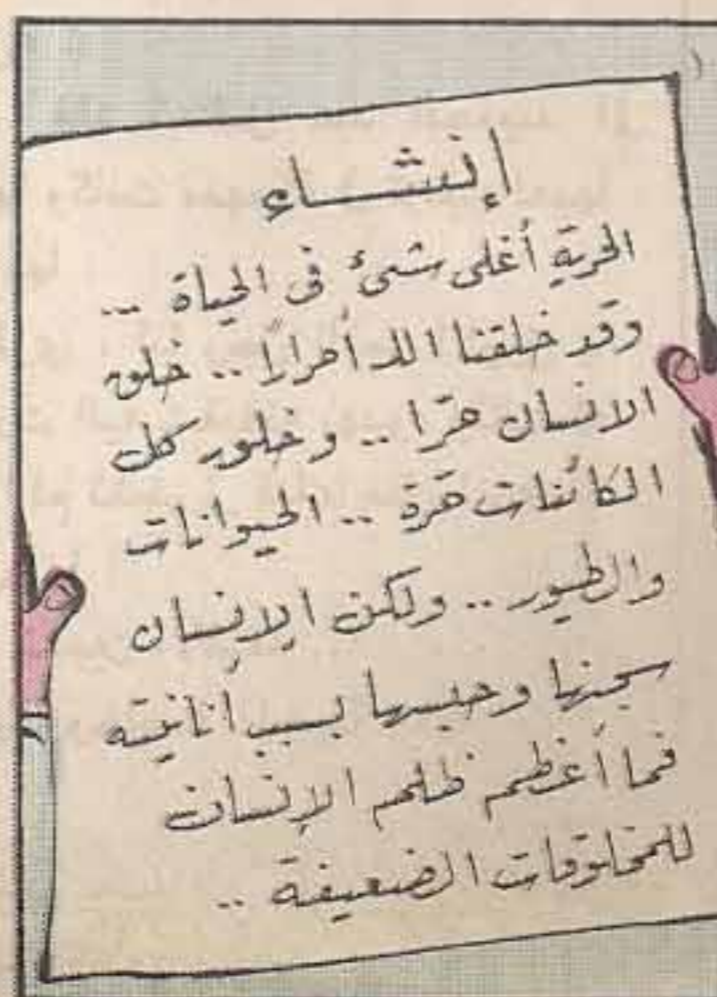 إنشاء
الحرية أغلى شئ فى الحياة ...
وقد خلقنا الله أحرارًا .. خلق
الانسان حرًا .. وخلق كل
الكائنات حرة .. الحيوانات
والطيور .. ولكن الإنسان
سجنها وحبسها بسبب أنانيته
فما أعظم ظلم الإنسان
للمخلوقات الضعيفة ..